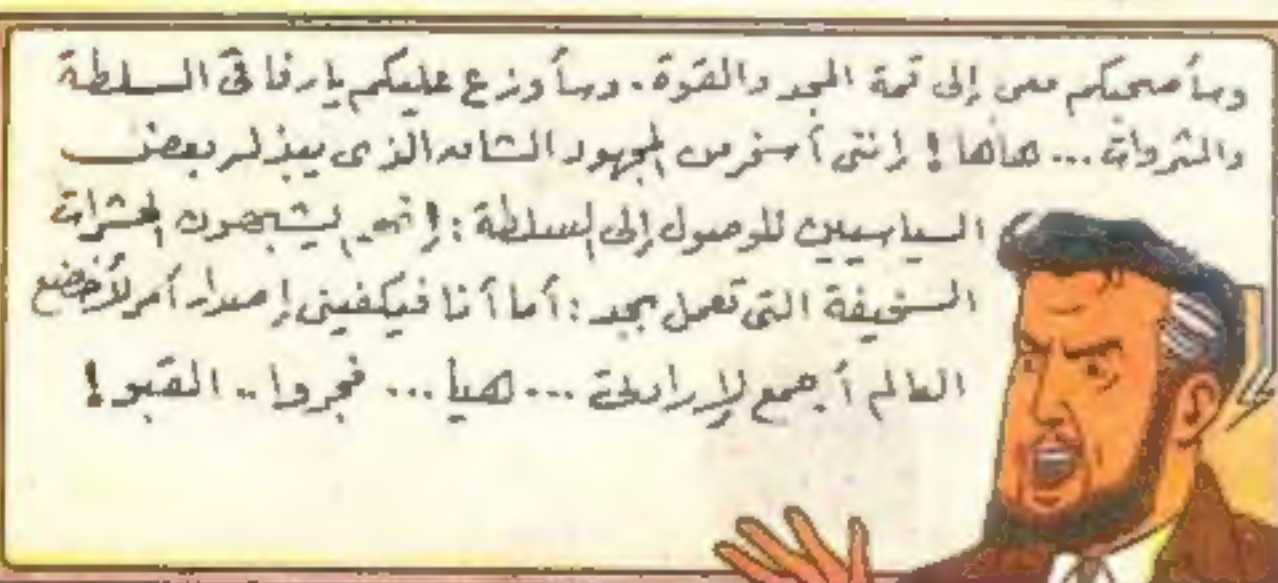 وسأصحبكم معى إلى قمة المجد والقوة . وسأوزع عليكم يارفاقى السلطة
والثروات ... هاها ! إننى أسخر من المجهود الشاق الذى يبذله بعض
السياسيين للوصول إلى السلطة : إنهم يشبهون الحشرات
السخيفة التى تعمل بجد : أما أنا فيكفينى إصدار أمر لأخضع
العالم أجمع لإرادتى ... هيا ... فجروا .. القبو !